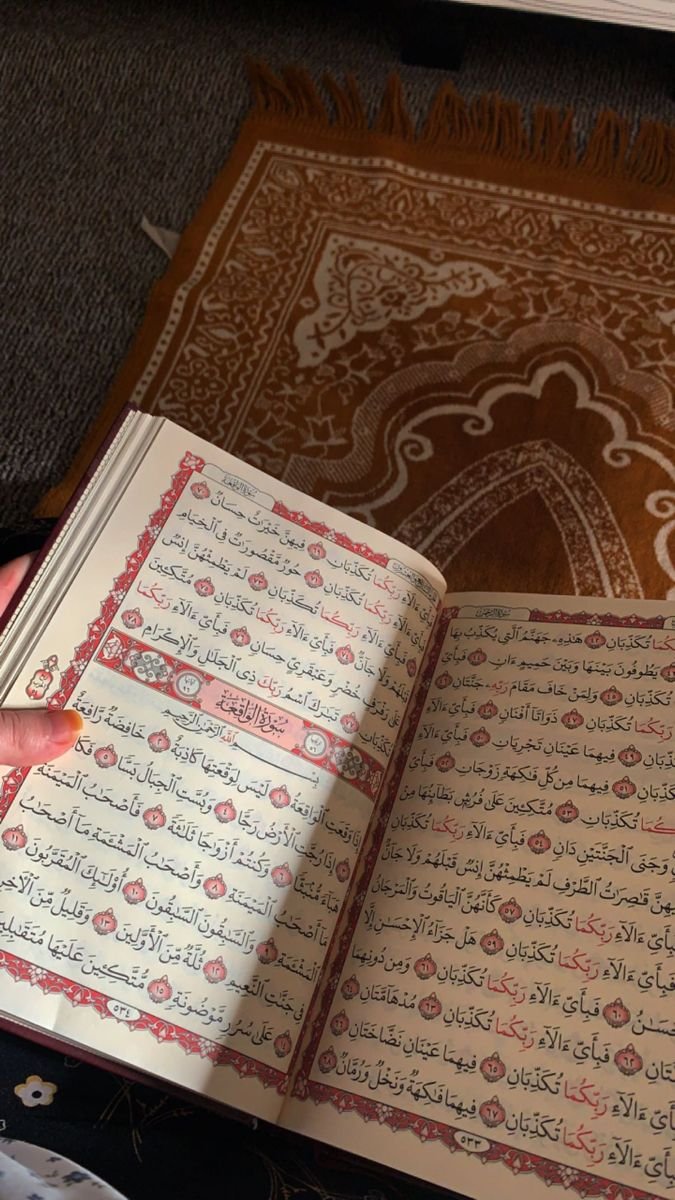 سُورَةُ الرَّحْمَٰن
كُمَا تُكَذِّبَانِ ٤٢ هَٰذِهِۦ جَهَنَّمُ ٱلَّتِى يُكَذِّبُ بِهَا
يَطُوفُونَ بَيْنَهَا وَبَيْنَ حَمِيمٍ ءَانٍ ٤٤ فَبِأَىِّ
تُكَذِّبَانِ ٤٥ وَلِمَنْ خَافَ مَقَامَ رَبِّهِۦ جَنَّتَانِ ٤٦
رَبِّكُمَا تُكَذِّبَانِ ٤٧ ذَوَاتَآ أَفْنَانٍ ٤٨ فَبِأَىِّ ءَالَآءِ
تُكَذِّبَانِ ٤٩ فِيهِمَا عَيْنَانِ تَجْرِيَانِ ٥٠ فَبِأَىِّ ءَالَآءِ
تُكَذِّبَانِ ٥١ فِيهِمَا مِن كُلِّ فَٰكِهَةٍ زَوْجَانِ ٥٢ فَبِأَىِّ
كُمَا تُكَذِّبَانِ ٥٣ مُتَّكِـِٔينَ عَلَىٰ فُرُشٍۭ بَطَآئِنُهَا مِنْ
وَجَنَى ٱلْجَنَّتَيْنِ دَانٍ ٥٤ فَبِأَىِّ ءَالَآءِ رَبِّكُمَا تُكَذِّبَانِ
فِيهِنَّ قَٰصِرَٰتُ ٱلطَّرْفِ لَمْ يَطْمِثْهُنَّ إِنسٌ قَبْلَهُمْ وَلَا جَآنٌّ
فَبِأَىِّ ءَالَآءِ رَبِّكُمَا تُكَذِّبَانِ ٥٧ كَأَنَّهُنَّ ٱلْيَاقُوتُ وَٱلْمَرْجَانُ
فَبِأَىِّ ءَالَآءِ رَبِّكُمَا تُكَذِّبَانِ ٥٩ هَلْ جَزَآءُ ٱلْإِحْسَٰنِ إِلَّا
ٱلْإِحْسَٰنُ ٦٠ فَبِأَىِّ ءَالَآءِ رَبِّكُمَا تُكَذِّبَانِ ٦١ وَمِن دُونِهِمَا
جَنَّتَانِ ٦٢ فَبِأَىِّ ءَالَآءِ رَبِّكُمَا تُكَذِّبَانِ ٦٣ مُدْهَآمَّتَانِ ٦٤
فَبِأَىِّ ءَالَآءِ رَبِّكُمَا تُكَذِّبَانِ ٦٥ فِيهِمَا عَيْنَانِ نَضَّاخَتَانِ ٦٦
فَبِأَىِّ ءَالَآءِ رَبِّكُمَا تُكَذِّبَانِ ٦٧ فِيهِمَا فَٰكِهَةٌ وَنَخْلٌ وَرُمَّانٌ ٦٨
٥٣٣
سُورَةُ الوَاقِعَة
فَبِأَىِّ ءَالَآءِ رَبِّكُمَا تُكَذِّبَانِ ٦٩ فِيهِنَّ خَيْرَٰتٌ حِسَانٌ ٧٠
فَبِأَىِّ ءَالَآءِ رَبِّكُمَا تُكَذِّبَانِ ٧١ حُورٌ مَّقْصُورَٰتٌ فِى ٱلْخِيَامِ
٧٢ فَبِأَىِّ ءَالَآءِ رَبِّكُمَا تُكَذِّبَانِ ٧٣ لَمْ يَطْمِثْهُنَّ إِنسٌ
قَبْلَهُمْ وَلَا جَآنٌّ ٧٤ فَبِأَىِّ ءَالَآءِ رَبِّكُمَا تُكَذِّبَانِ ٧٥ مُتَّكِـِٔينَ
عَلَىٰ رَفْرَفٍ خُضْرٍ وَعَبْقَرِىٍّ حِسَانٍ ٧٦ فَبِأَىِّ ءَالَآءِ رَبِّكُمَا
تُكَذِّبَانِ ٧٧ تَبَٰرَكَ ٱسْمُ رَبِّكَ ذِى ٱلْجَلَٰلِ وَٱلْإِكْرَامِ ٧٨
سُورَةُ الْوَاقِعَةِ
بِسْمِ ٱللَّهِ ٱلرَّحْمَٰنِ ٱلرَّحِيمِ
إِذَا وَقَعَتِ ٱلْوَاقِعَةُ ١ لَيْسَ لِوَقْعَتِهَا كَاذِبَةٌ ٢ خَافِضَةٌ رَّافِعَةٌ
٣ إِذَا رُجَّتِ ٱلْأَرْضُ رَجًّا ٤ وَبُسَّتِ ٱلْجِبَالُ بَسًّا ٥ فَكَانَتْ
هَبَآءً مُّنۢبَثًّا ٦ وَكُنتُمْ أَزْوَٰجًا ثَلَٰثَةً ٧ فَأَصْحَٰبُ ٱلْمَيْمَنَةِ
مَآ أَصْحَٰبُ ٱلْمَيْمَنَةِ ٨ وَأَصْحَٰبُ ٱلْمَشْـَٔمَةِ مَآ أَصْحَٰبُ
ٱلْمَشْـَٔمَةِ ٩ وَٱلسَّٰبِقُونَ ٱلسَّٰبِقُونَ ١٠ أُو۟لَٰٓئِكَ ٱلْمُقَرَّبُونَ ١١
فِى جَنَّٰتِ ٱلنَّعِيمِ ١٢ ثُلَّةٌ مِّنَ ٱلْأَوَّلِينَ ١٣ وَقَلِيلٌ مِّنَ ٱلْءَاخِرِينَ
١٤ عَلَىٰ سُرُرٍ مَّوْضُونَةٍ ١٥ مُّتَّكِـِٔينَ عَلَيْهَا مُتَقَٰبِلِينَ
٥٣٤